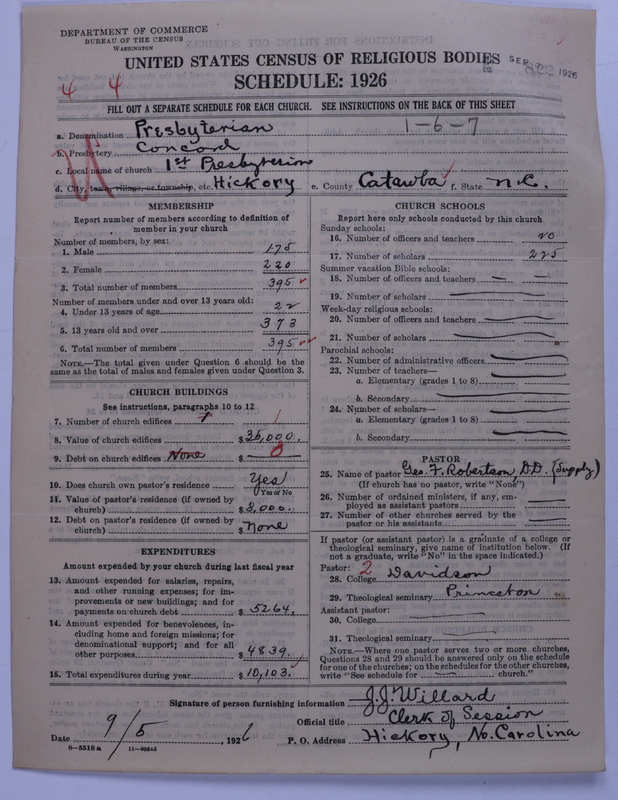 DEPARTMENT OF COMMERCE
BUREAU OF THE CENSUS
WASHINGTON
UNITED STATES CENSUS OF RELIGIOUS BODIES
SEP 1926
SCHEDULE: 1926
4 4
FILL OUT A SEPARATE SCHEDULE FOR EACH CHURCH. SEE INSTRUCTIONS ON THE BACK OF THIS SHEET
a. Denomination Presbyterian 1-6-7
b. Presbytery Concord
c. Local name of church 1st Presbyterian
d. City, town, village, or township, etc. Hickory e. County Catawba f. State N.C.
MEMBERSHIP
Report number of members according to definition of
member in your church
Number of members, by sex:
1. Male 175
2. Female 220
3. Total number of members 395
Number of members under and over 13 years old:
4. Under 13 years of age 22
5. 13 years old and over 373
6. Total number of members 395
NOTE.—The total given under Question 6 should be the
same as the total of males and females given under Question 3.
CHURCH BUILDINGS
See instructions, paragraphs 10 to 12
7. Number of church edifices 1 1
8. Value of church edifices $35,000.
9. Debt on church edifices None $ 0
10. Does church own pastor's residence Yes
(Yes or No)
11. Value of pastor's residence (if owned by
church) $8,000.
12. Debt on pastor's residence (if owned by
church) $None
EXPENDITURES
Amount expended by your church during last fiscal year
13. Amount expended for salaries, repairs,
and other running expenses; for im-
provements or new buildings; and for
payments on church debt $5264.
14. Amount expended for benevolences, in-
cluding home and foreign missions; for
denominational support; and for all
other purposes $4839.
15. Total expenditures during year $10,103.
CHURCH SCHOOLS
Report here only schools conducted by this church
Sunday schools:
16. Number of officers and teachers 20
17. Number of scholars 225
Summer vacation Bible schools:
18. Number of officers and teachers
19. Number of scholars
Week-day religious schools:
20. Number of officers and teachers
21. Number of scholars
Parochial schools:
22. Number of administrative officers
23. Number of teachers—
a. Elementary (grades 1 to 8)
b. Secondary
24. Number of scholars—
a. Elementary (grades 1 to 8)
b. Secondary
PASTOR
25. Name of pastor Geo. F. Robertson, D.D. (Supply)
(If church has no pastor, write "None")
26. Number of ordained ministers, if any, em-
ployed as assistant pastors
27. Number of other churches served by the
pastor or his assistants
If pastor (or assistant pastor) is a graduate of a college or
theological seminary, give name of institution below. (If
not a graduate, write "No" in the space indicated.)
Pastor: 2
28. College Davidson
29. Theological seminary Princeton
Assistant pastor:
30. College
31. Theological seminary
NOTE.—Where one pastor serves two or more churches,
Questions 28 and 29 should be answered only on the schedule
for one of the churches; on the schedules for the other churches,
write "See schedule for church."
Signature of person furnishing information J.J. Willard
Official title Clerk of Session
Date 9/5, 1926 P. O. Address Hickory, No. Carolina
8—5518a 11—9054d